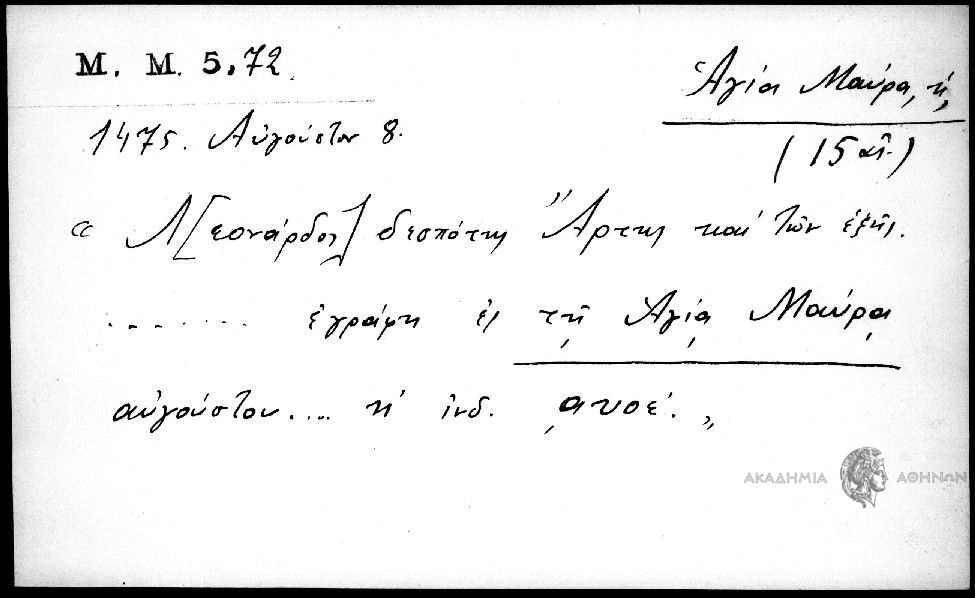 M. M. 5.72.
Ἁγία Μαύρα, ἡ,
(15 αἰ.)
1475. Αὐγούστου 8.
« Λ[εονάρδος] δεσπότης Ἄρτης καὶ τῶν ἑξῆς.
........ ἐγράφη ἐς τῇ Ἁγίᾳ Μαύρᾳ
αὐγούστου.... η' ἰνδ. ͵αυοε'. »
ΑΚΑΔΗΜΙΑ ΑΘΗΝΩΝ